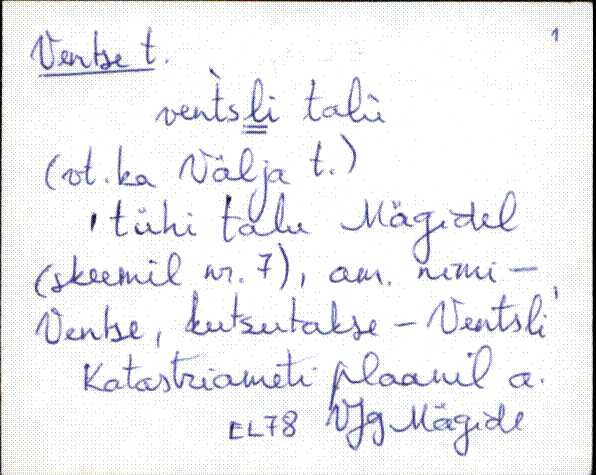 Ventse t. 1
vent̀sli talu
(vt. ka Välja t.)
tühi talu Mägidel
(skeemil nr. 7), am. nimi –
Ventse, kutsutakse – Ventsli
Katastriameti plaanil a.
EL78 VJg Mägide